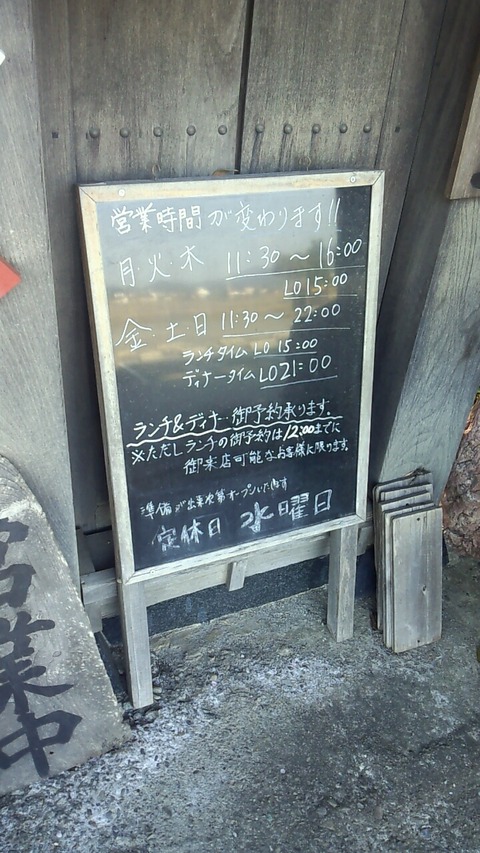 営業時間が変わります!!
月・火・木 11:30 〜 16:00
LO 15:00
金・土・日 11:30 〜 22:00
ランチタイム LO 15:00
ディナータイム LO 21:00
ランチ&ディナー御予約承ります。
※ただしランチの御予約は12:00までに
御来店可能なお客様に限ります。
準備が出来次第オープンいたします
定休日 水曜日
営業中